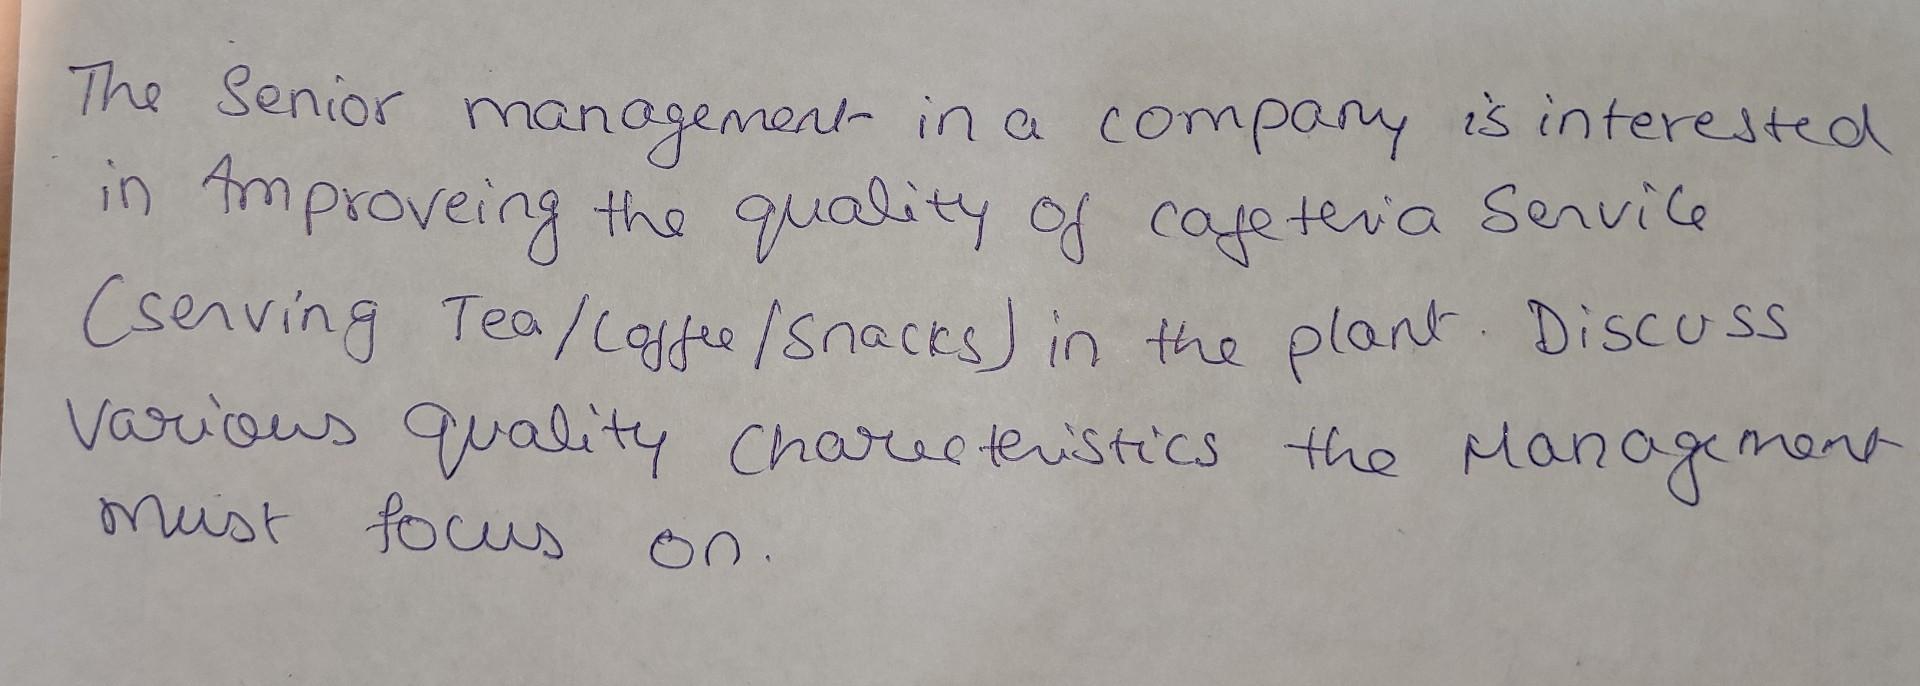 The Senior management in a company is interested
in Improveing the quality of cafeteria Service
(serving Tea/Coffee/Snacks) in the plant. Discuss
Various quality Charecteristics the Management
must focus on.